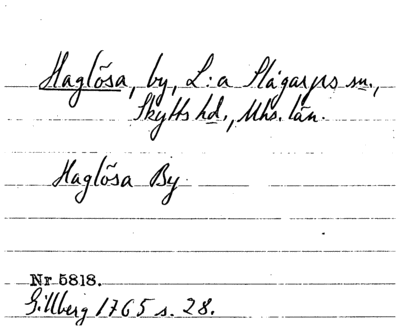 Haglösa, by, L:a Slågarps sn.,
Skytts hd., Mhs. län.
Haglösa By
Nr 5818.
Gillberg 1765 s. 28.